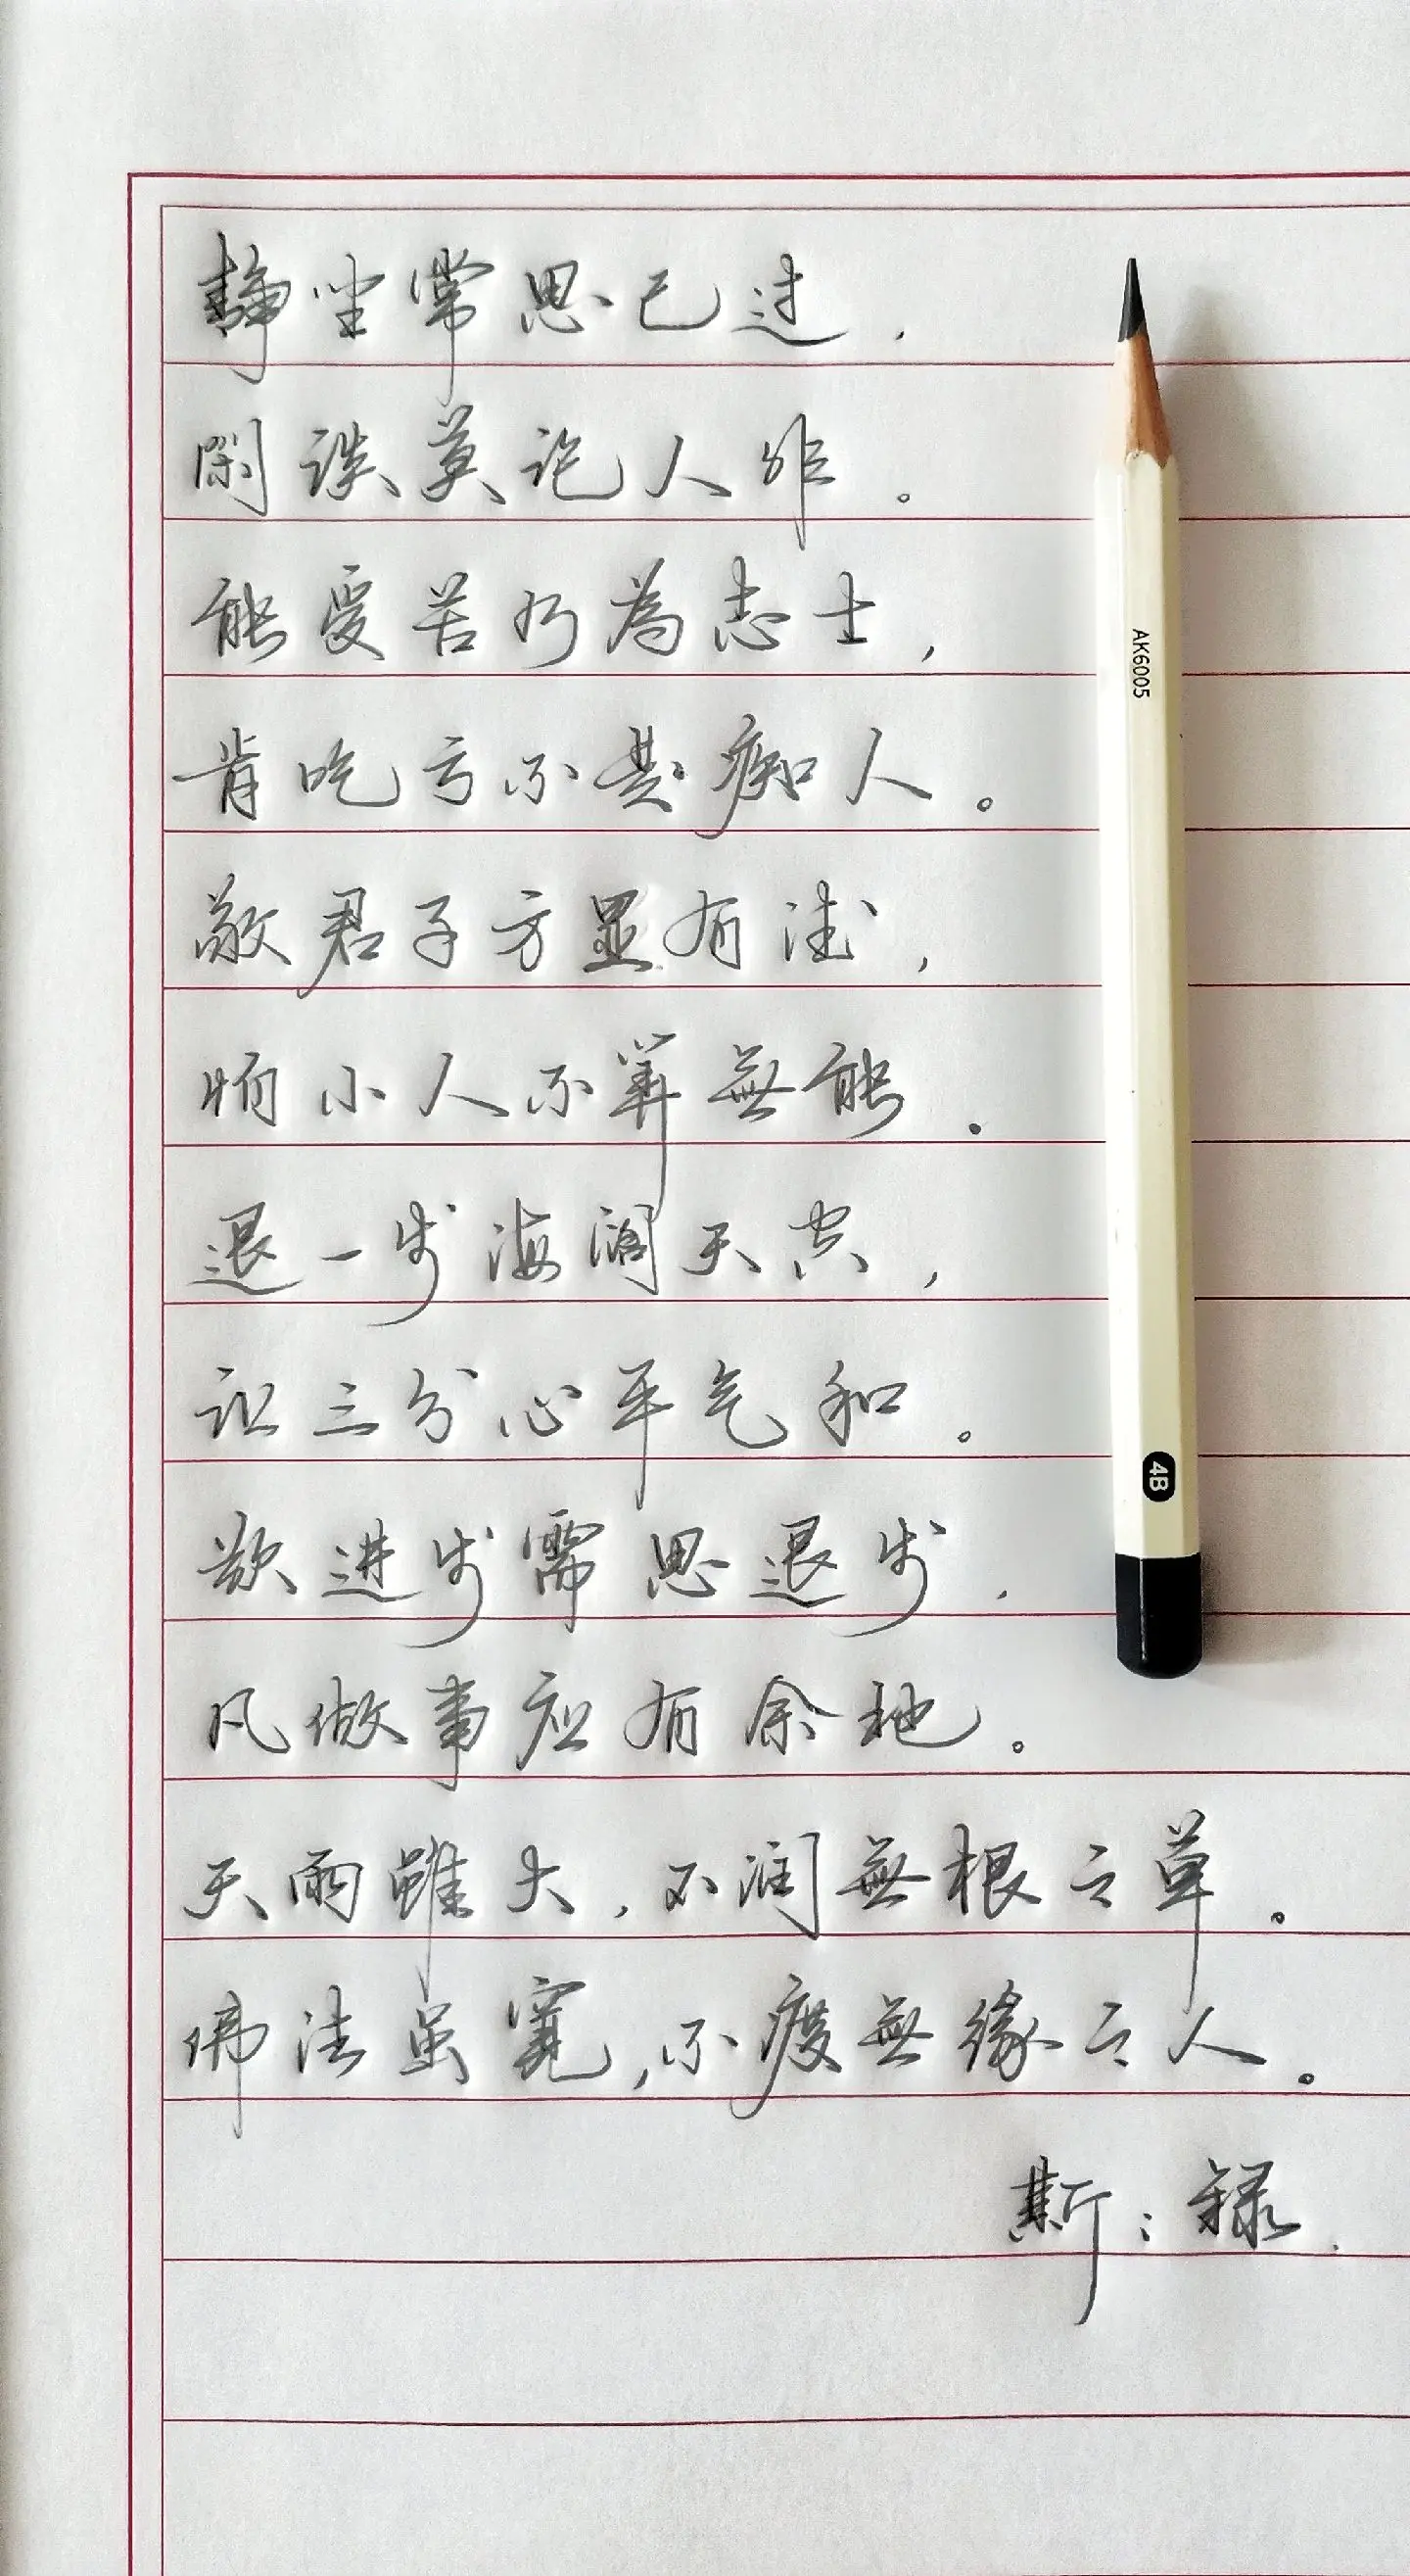 静坐常思己过,
閑谈莫论人非。
能受苦乃為志士,
肯吃亏不是痴人。
敬君子方显有德,
怕小人不算無能.
退一步海阔天空,
让三分心平气和。
欲进步需思退步,
凡做事应有余地。
天雨雖大,不润無根之草。
佛法虽寬,不度無缘之人。
斯:録.
AK6005
4B